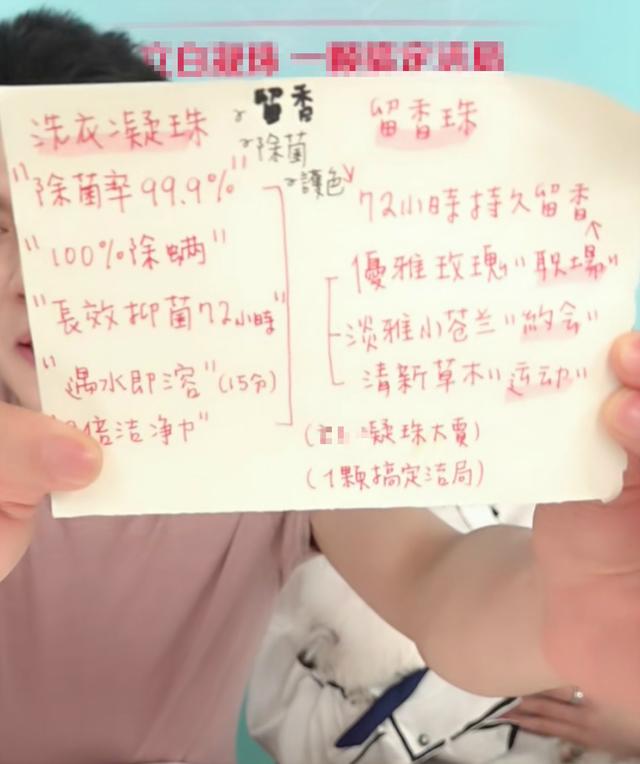 洗衣凝珠
"除菌率99.9%"
"100%除螨"
"長效抑菌72小時"
"遇水即溶"(15分)
倍洁净力"
留香
除菌
護色
留香珠
72小時持久留香
優雅玫瑰"职場"
淡雅小苍兰"約会"
清新草木"运动"
凝珠大賣)
(1顆搞定洁局)